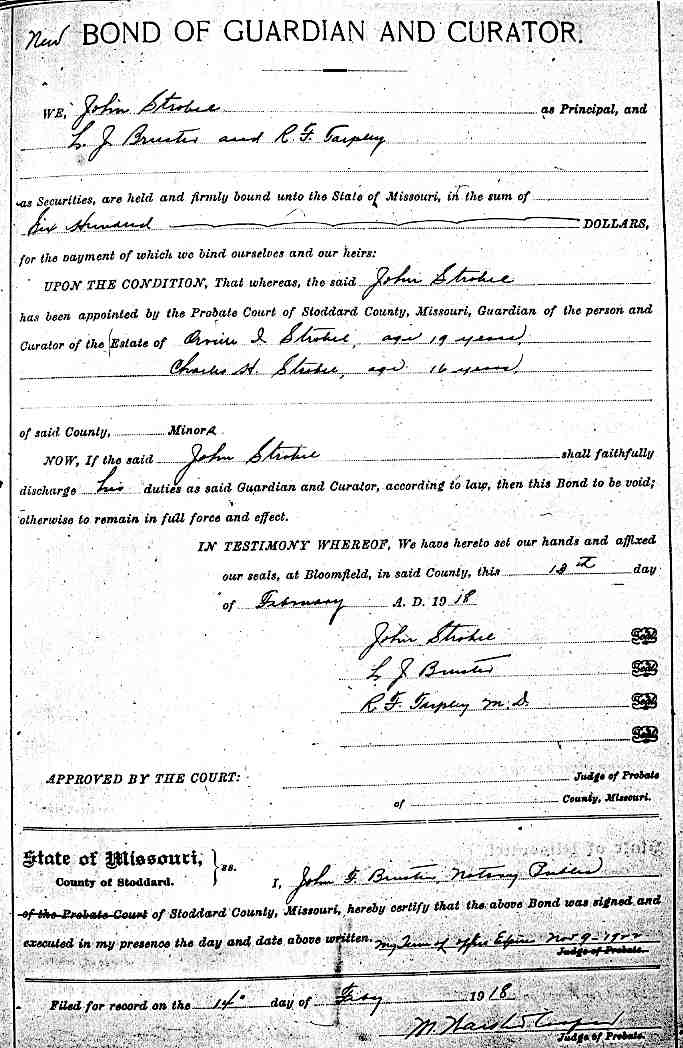 New BOND OF GUARDIAN AND CURATOR.
WE, John Strobel as Principal, and
L. J. Bruster and R. F. Tarpley
as Securities, are held and firmly bound unto the State of Missouri, in the sum of
Six Hundred DOLLARS,
for the payment of which we bind ourselves and our heirs:
UPON THE CONDITION, That whereas, the said John Strobel
has been appointed by the Probate Court of Stoddard County, Missouri, Guardian of the person and
Curator of the Estate of Orville I Strobel, age 19 years,
Charles H. Strobel, age 16 years,
of said County, Minors
NOW, If the said John Strobel shall faithfully
discharge his duties as said Guardian and Curator, according to law, then this Bond to be void;
otherwise to remain in full force and effect.
IN TESTIMONY WHEREOF, We have hereto set our hands and affixed
our seals, at Bloomfield, in said County, this day
of February A. D. 1918
John Strobel Seal
L J Bruster Seal
R. F. Tarpley M. D. Seal
Seal
APPROVED BY THE COURT: Judge of Probate
of County, Missouri.
State of Missouri,
County of Stoddard. } ss. I, John F. Bruster, Notary Public
of the Probate Court of Stoddard County, Missouri, hereby certify that the above Bond was signed and
executed in my presence the day and date above written. My Term of office Expires Nov 9-1922
Judge of Probate.
Filed for record on the 14" day of Feby 1918
Judge of Probate.